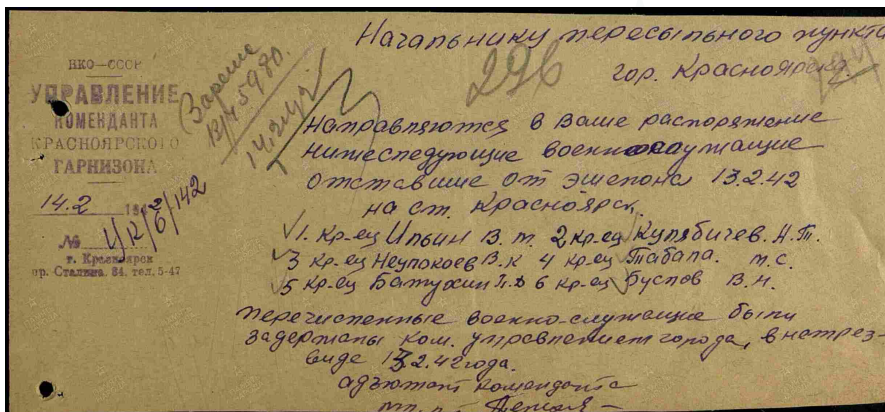 НКО—СССР
УПРАВЛЕНИЕ
КОМЕНДАНТА
КРАСНОЯРСКОГО
ГАРНИЗОНА
14.2 1942
№
г. Красноярск
пр. Сталина, 84, тел. 5-47
296
Начальнику пересыльного пункта
гор. Красноярска.
Направляются в Ваше распоряжение
нижеследующие военнослужащие
отставшие от эшелона 13.2.42
на ст. Красноярск.
1. Кр-ец Ильин В. т. 2 Кр-ец Кулябичев. А.Т.
3 Кр-ец Неупокоев В.К 4 Кр-ец Табала. М.С.
5 Кр-ец Батухин П.Д 6 Кр-ец Буслов В.Н.
перечисленные военно-служащие были
задержаны ком. управлением города, в нетрез-
виде 13.2.42 года.
адъютант коменданта